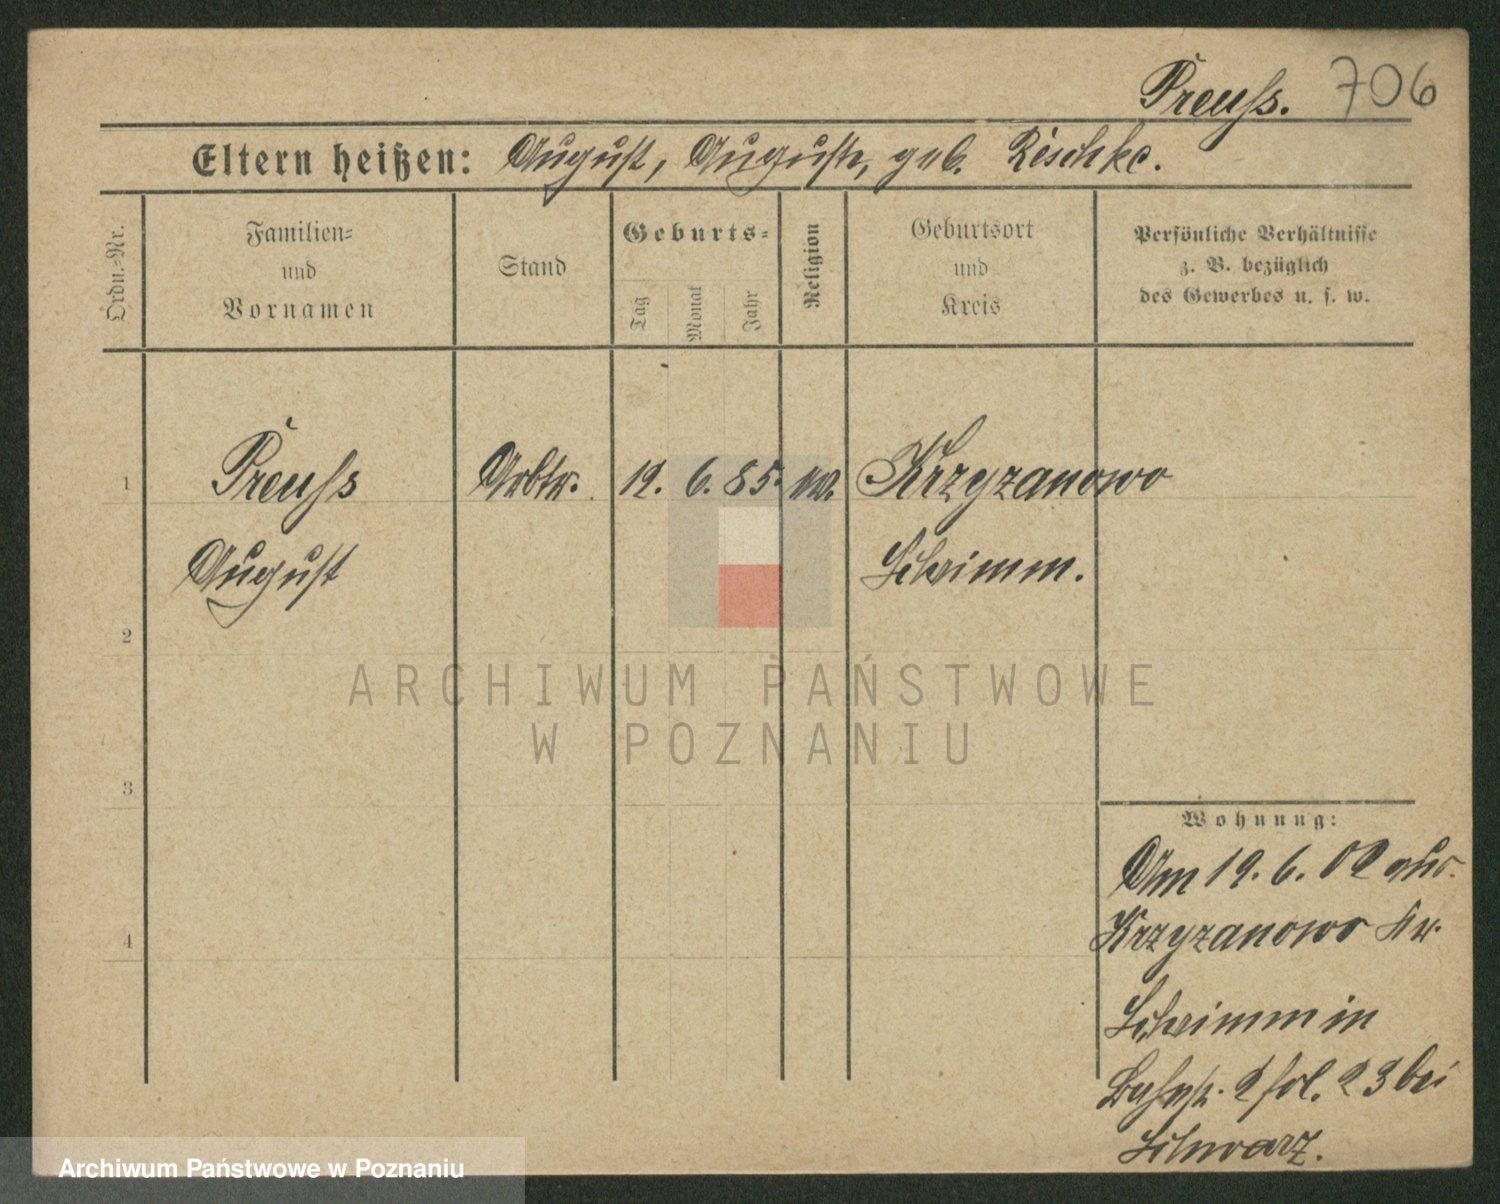 Preuss. 706
Eltern heißen: August, Auguste, geb. Rischke.
Ordn.-Nr.
Familien-
und
Vornamen
Stand
Geburts-
Tag
Monat
Jahr
Religion
Geburtsort
und
Kreis
Persönliche Verhältnisse
z. B. bezüglich
des Gewerbes u. s. w.
1 Preuss Arbtr. 12. 6. 85. ev. Krzyzanowo
August Schrimm.
2
3
4
Wohnung:
Am 19. 6. 02 aus
Krzyzanowo Kr.
Schrimm in
2 fol. 23 bei
Schwarz.
ARCHIWUM PAŃSTWOWE
W POZNANIU
Archiwum Państwowe w Poznaniu